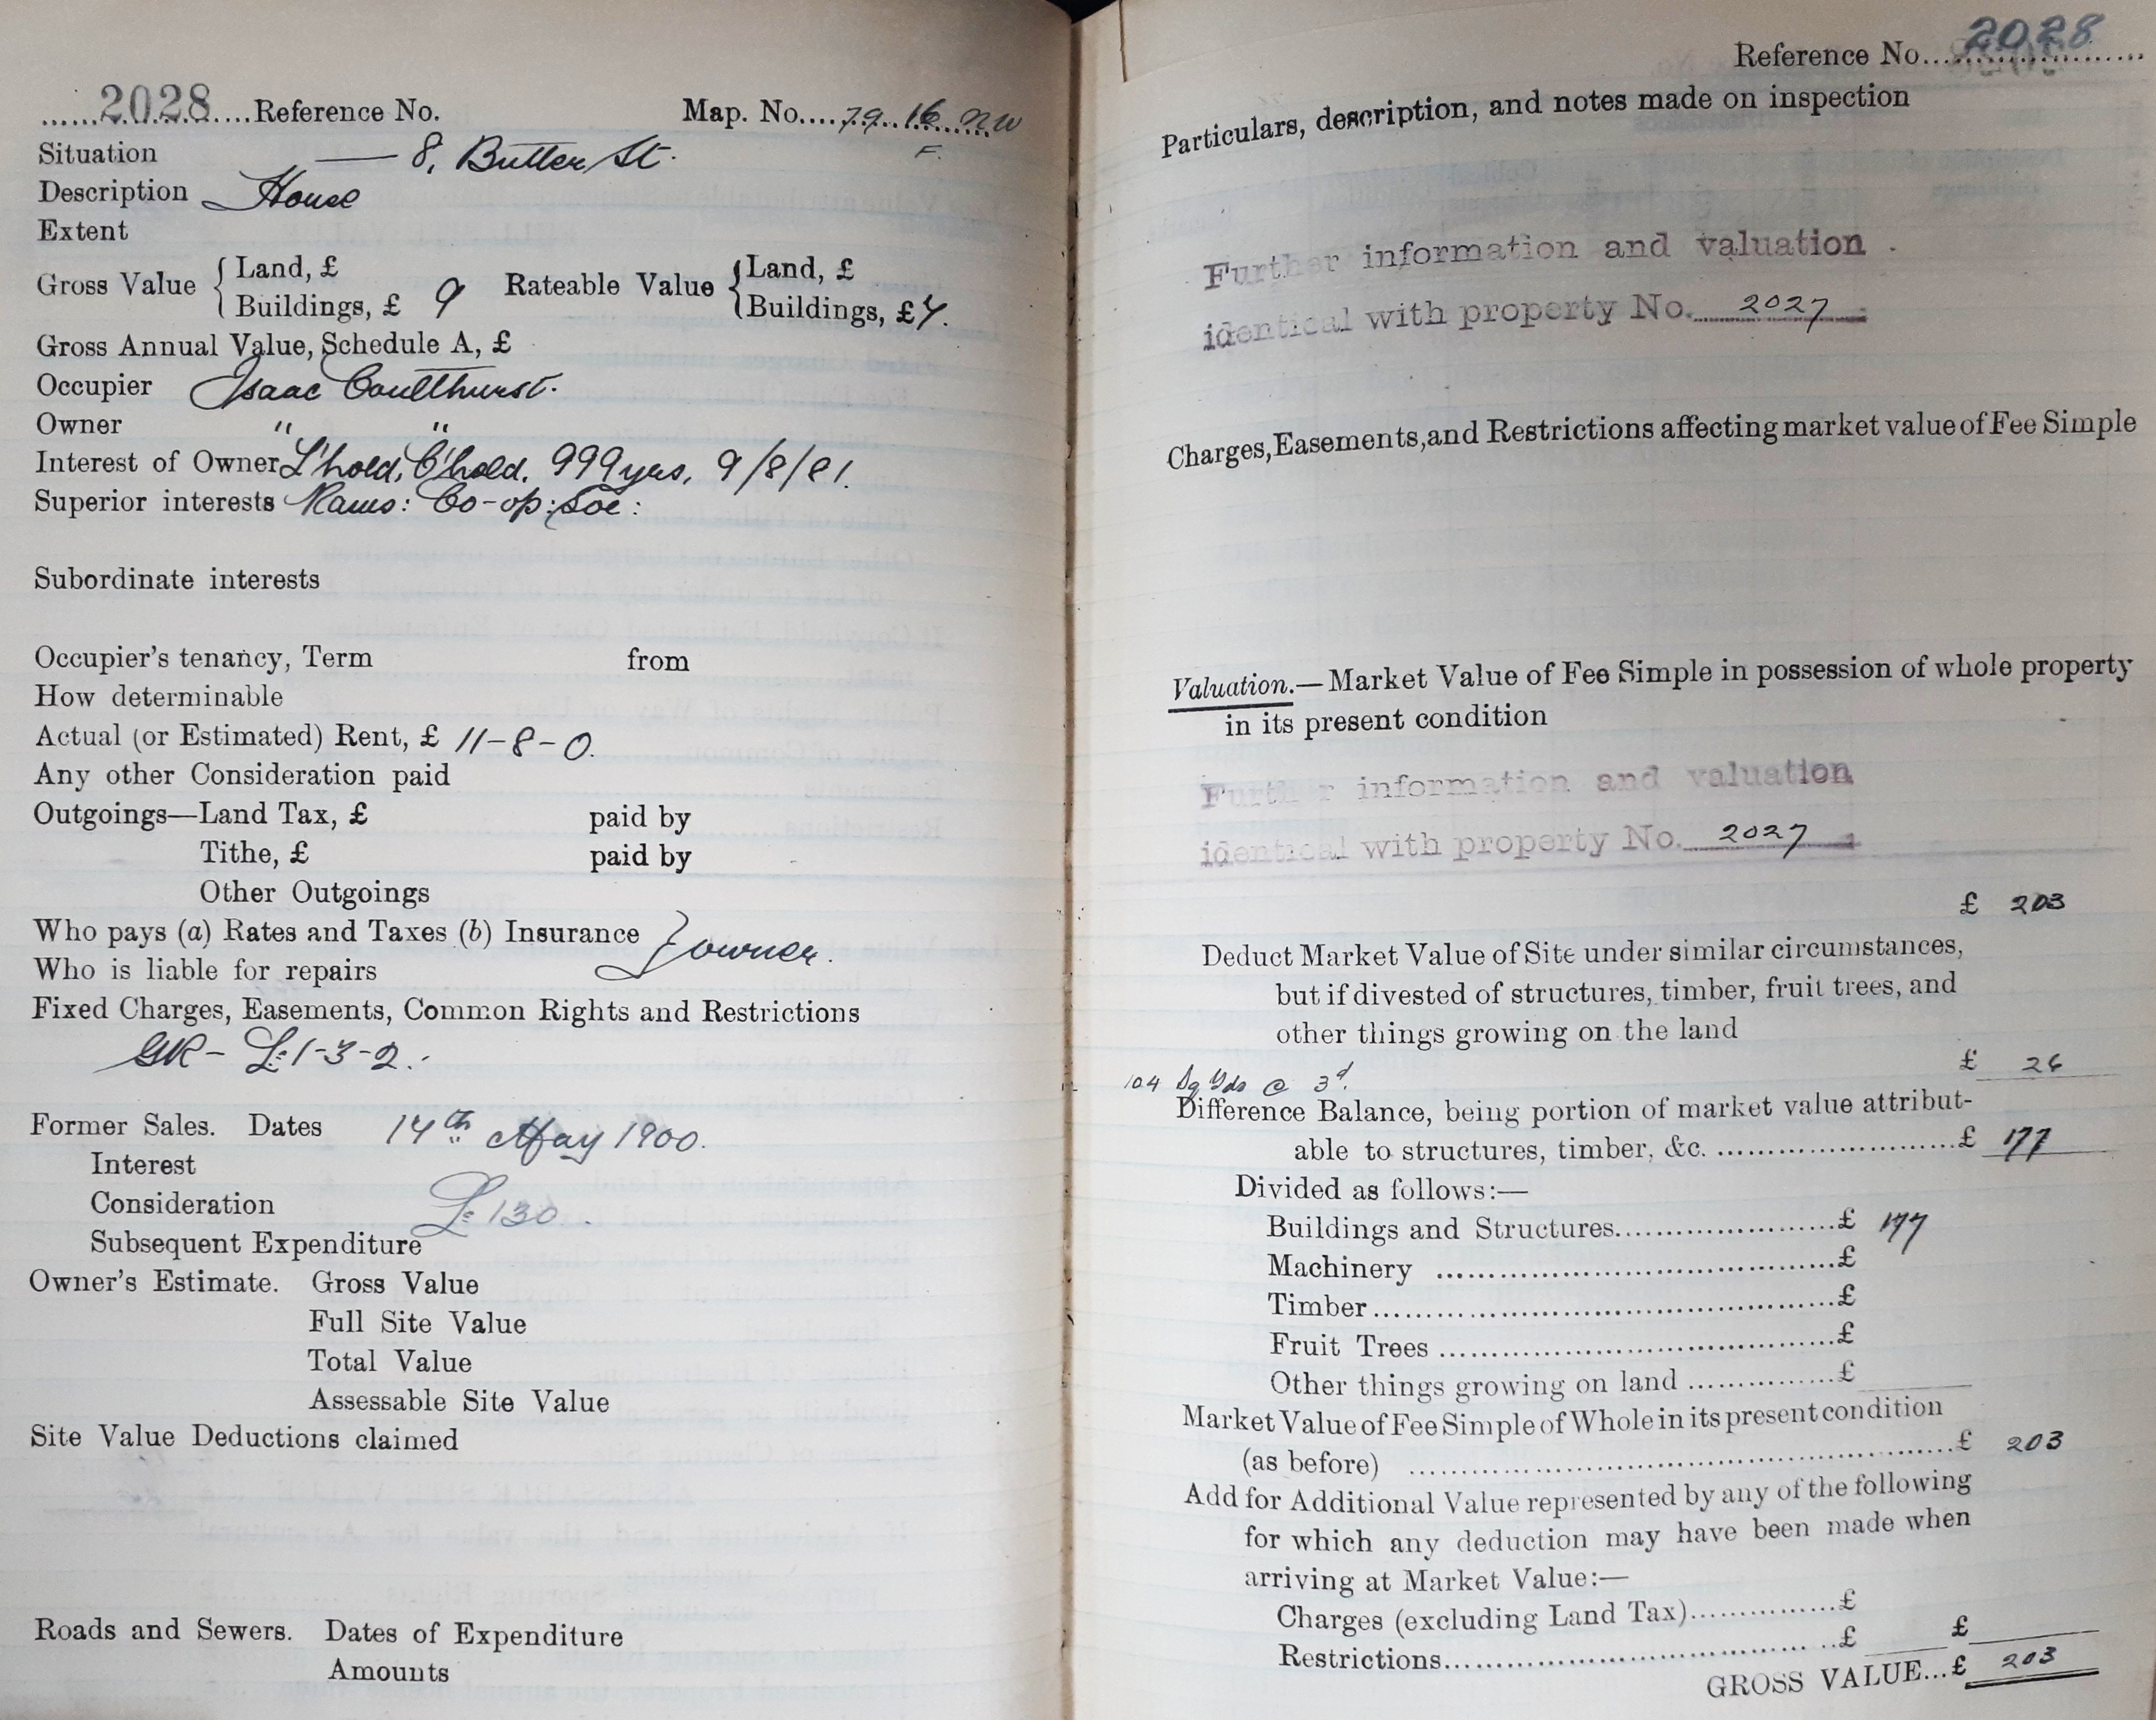 2028 Reference No. Map. No. 79. 16 NW
F.
Situation — 8, Butter St.
Description House
Extent
Gross Value { Land, £ Rateable Value { Land, £
Buildings, £ 9 Buildings, £ 7.
Gross Annual Value, Schedule A, £
Occupier Isaac Coulthurst.
Owner " "
Interest of Owner L'hold, C'hold, 999 yrs, 9/8/81.
Superior interests Rams: Co-op: Soc:
Subordinate interests
Occupier's tenancy, Term from
How determinable
Actual (or Estimated) Rent, £ 11-8-0.
Any other Consideration paid
Outgoings—Land Tax, £ paid by
Tithe, £ paid by
Other Outgoings
Who pays (a) Rates and Taxes (b) Insurance } owner.
Who is liable for repairs
Fixed Charges, Easements, Common Rights and Restrictions
GR- £:1-3-2.:
Former Sales. Dates 14th May 1900.
Interest
Consideration £:130.
Subsequent Expenditure
Owner's Estimate. Gross Value
Full Site Value
Total Value
Assessable Site Value
Site Value Deductions claimed
Roads and Sewers. Dates of Expenditure
Amounts
Reference No. 2028
Particulars, description, and notes made on inspection
Further information and valuation
identical with property No. 2027
Charges, Easements, and Restrictions affecting market value of Fee Simple
Valuation.—Market Value of Fee Simple in possession of whole property
in its present condition
Further information and valuation
identical with property No. 2027
£ 203
Deduct Market Value of Site under similar circumstances,
but if divested of structures, timber, fruit trees, and
other things growing on the land
£ 26
104 Sq Yds @ 3d.
Difference Balance, being portion of market value attribut-
able to structures, timber, &c. £ 177
Divided as follows:—
Buildings and Structures £ 177
Machinery £
Timber £
Fruit Trees £
Other things growing on land £
Market Value of Fee Simple of Whole in its present condition
(as before) £ 203
Add for Additional Value represented by any of the following
for which any deduction may have been made when
arriving at Market Value:—
Charges (excluding Land Tax) £
Restrictions £ £
GROSS VALUE...£ 203